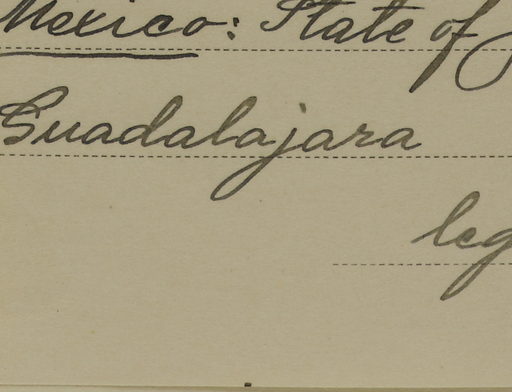 Mexico: State of
Guadalajara
leg